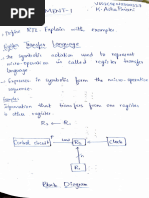 MENT-1
K. Asha Jhansi
Define RTL. Explain with examples.
Register Transfer Language
The symbolic notation used to represent
micro-operation is called register transfer
language
Expresses in symbolic form the micro-operation
sequence.
Information that transfer from one register
to another.
R2 ← R1
Control Circuit
R2
Clock
R1
Block Diagram